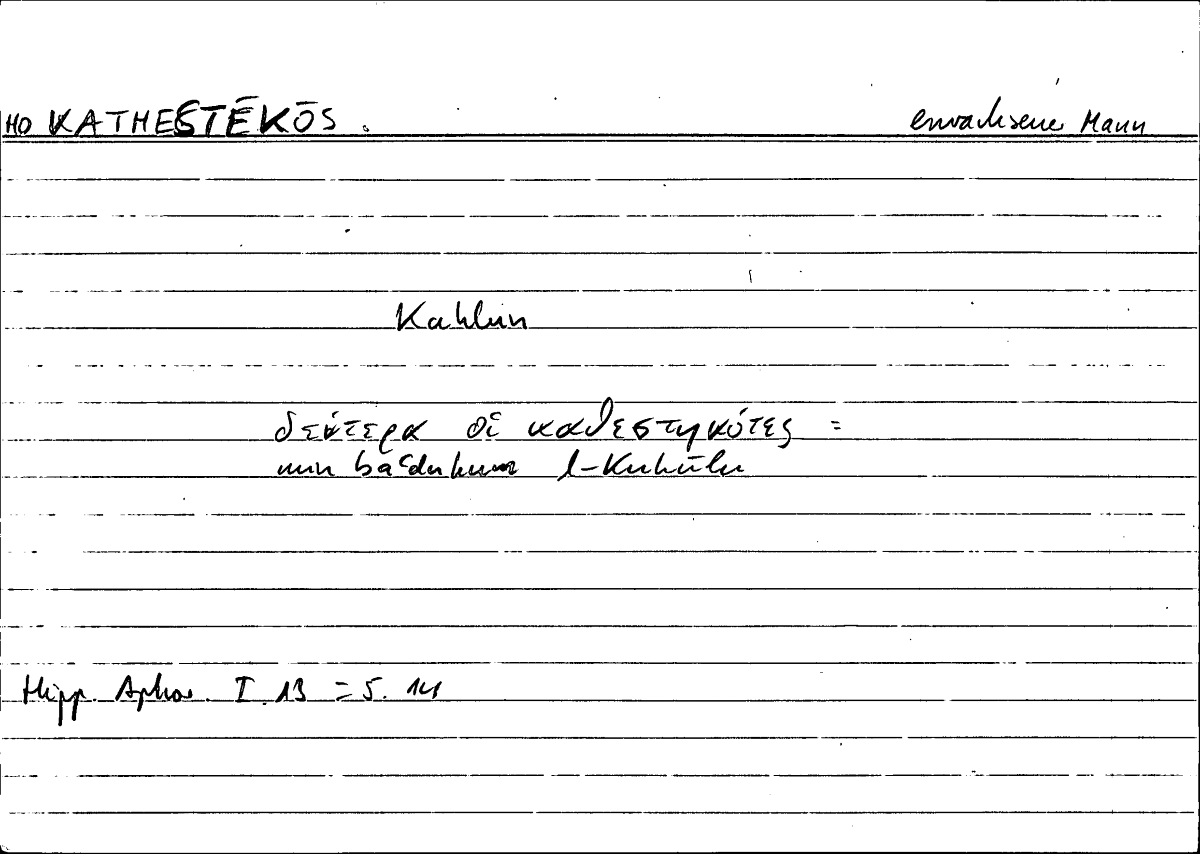 HO KATHESTĒKŌS. erwachsener Mann
Kahlun
δεύτερα οἱ καθεστηκότες =
min baʿdihim l-Kuhūlu
Hipp. Aphor. I. 13 = 5. 14